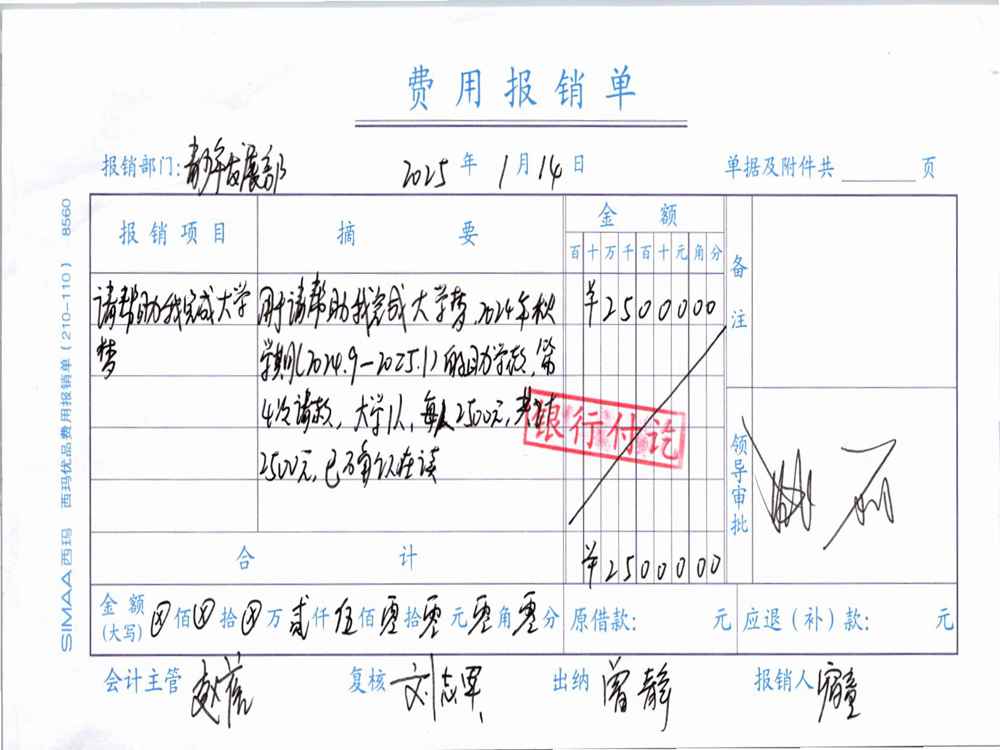 费用报销单
报销部门: 青年发展部 2025 年 1 月 14 日 单据及附件共 页
报销项目 摘要 金额 备注
百 十 万 千 百 十 元 角 分
请帮助我完成大学 用于请帮助我完成大学梦,2024年秋 ¥2500000
梦 学期(2024.9-2025.1)的助学款,第
4次请款,大学1人,每人2500元,共计
2500元,已确认在读
银行付讫
领导审批
合计 ¥2500000
金额(大写) ⊗佰⊗拾⊗万贰仟伍佰零拾零元零角零分 原借款: 元 应退(补)款: 元
会计主管 复核 刘志军 出纳 曾静 报销人
SIMAA 西玛 西玛优品费用报销单(210-110) 8560